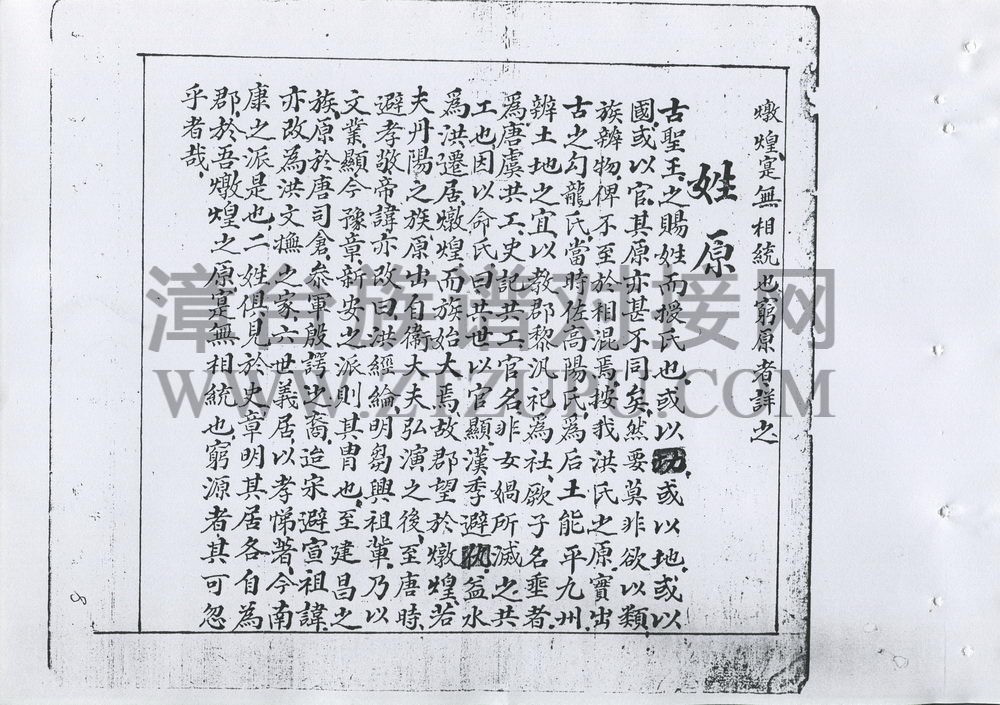 燉煌寔無相統也窮原者詳之
姓原
古聖王之賜姓而授氏也或以功或以地或以
國或以官其原亦甚不同矣然要莫非欲以類
族辨物俾不至於相混焉按我洪氏之原實出
古之勾龍氏當時佐高陽氏為后土能平九州
辨土地之宜以教郡黎汎祀為社厥子名垂者
為唐虞共工史記共工官名非女媧所滅之共
工也因以命氏曰共世以官顯漢季避仇益水
為洪遷居燉煌而族始大焉故郡望於燉煌若
夫丹陽之族原出自衞大夫弘演之後至唐時
避孝敬帝諱亦改曰洪經綸明芻興祖軰乃以
文業顯今豫章新安之派則其胄也至建昌之
族原於唐司倉參軍殷諤之裔迨宋避宣祖諱
亦改為洪文撫之家六世義居以孝悌著今南
康之派是也二姓俱見於史章明其居各自為
郡於吾燉煌之原寔無相統也窮源者其可忽
乎者哉
8
漳台族谱对接网
WWW.ZTZUPU.COM